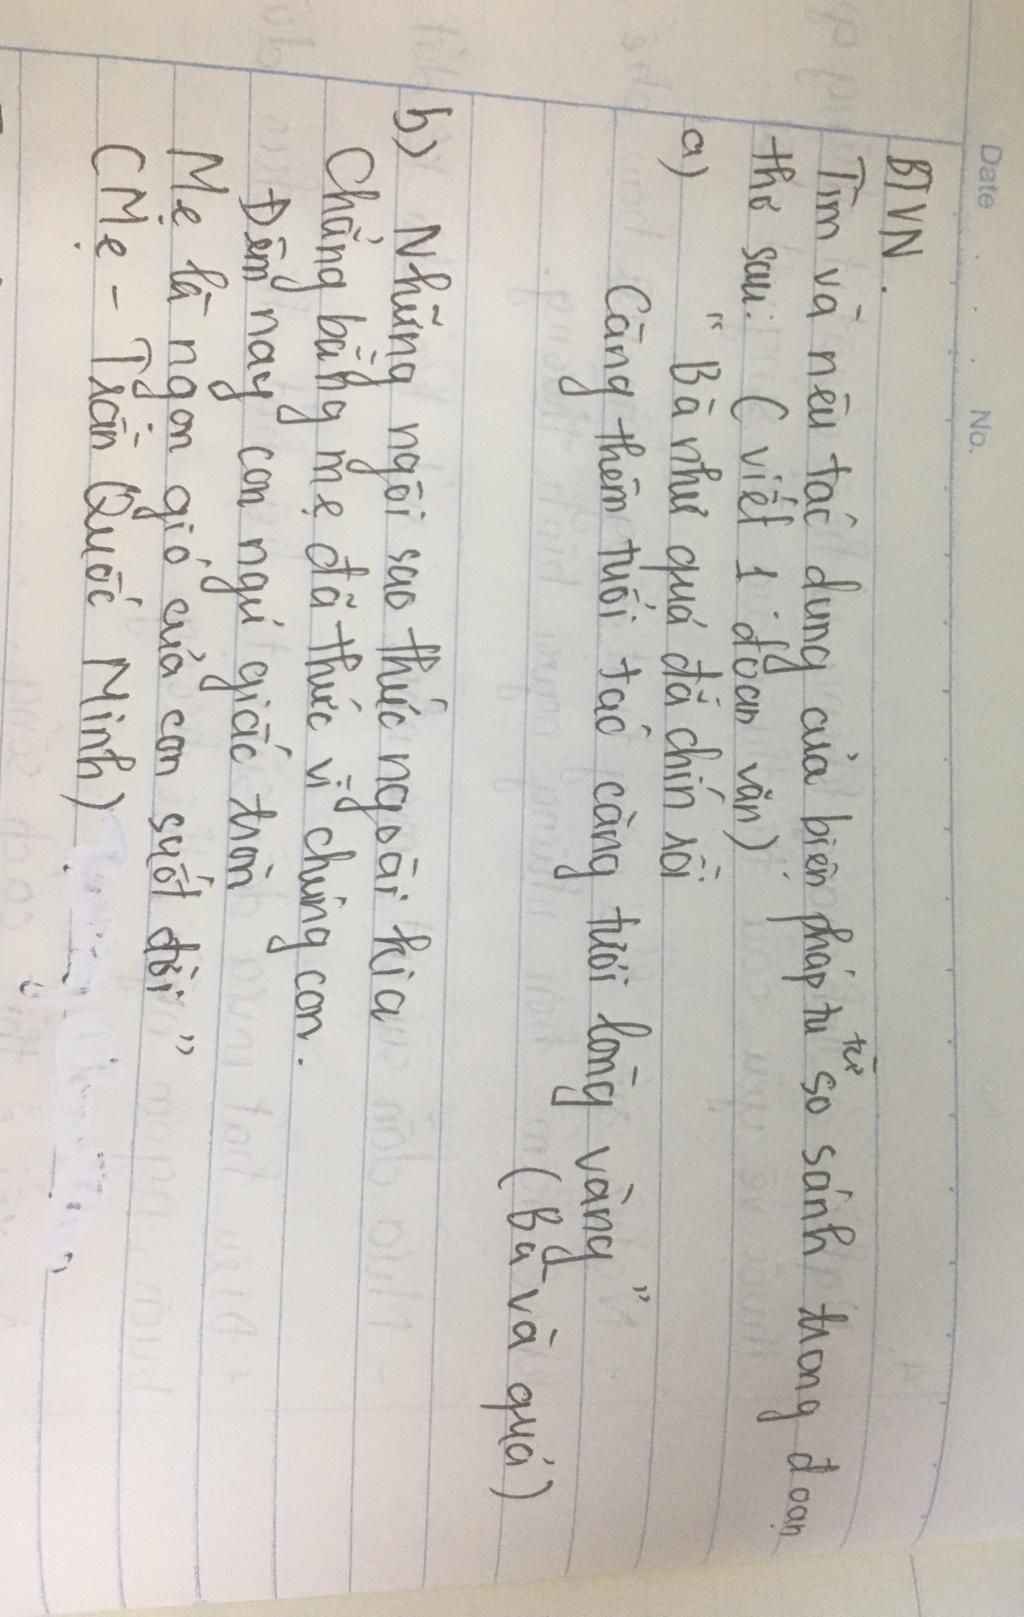 Date
No.
BTVN.
Tìm và nêu tác dụng của biện pháp tu từ so sánh trong đoạn
thơ sau: (viết 1 đoạn văn)
a) "Bà như quả đã chín rồi
Càng thêm tuổi tác càng tươi lòng vàng"
(Bà và quả)
b) Những ngôi sao thức ngoài kia
Chẳng bằng mẹ đã thức vì chúng con.
Đêm nay con ngủ giấc tròn
Mẹ là ngọn gió của con suốt đời"
(Mẹ - Trần Quốc Minh)